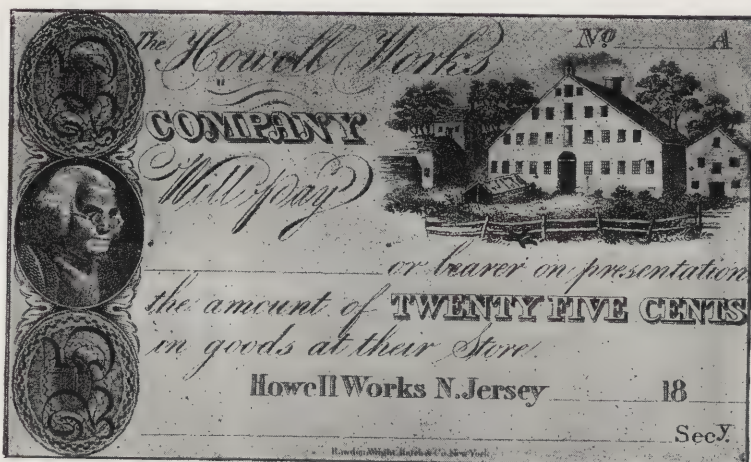 25
The Howell Works
Nº A
COMPANY
Will pay
or bearer on presentation
the amount of TWENTY FIVE CENTS
in goods at their Store.
Howell Works N. Jersey 18
25
Secy.
Rawdon, Wright, Hatch & Co. New York